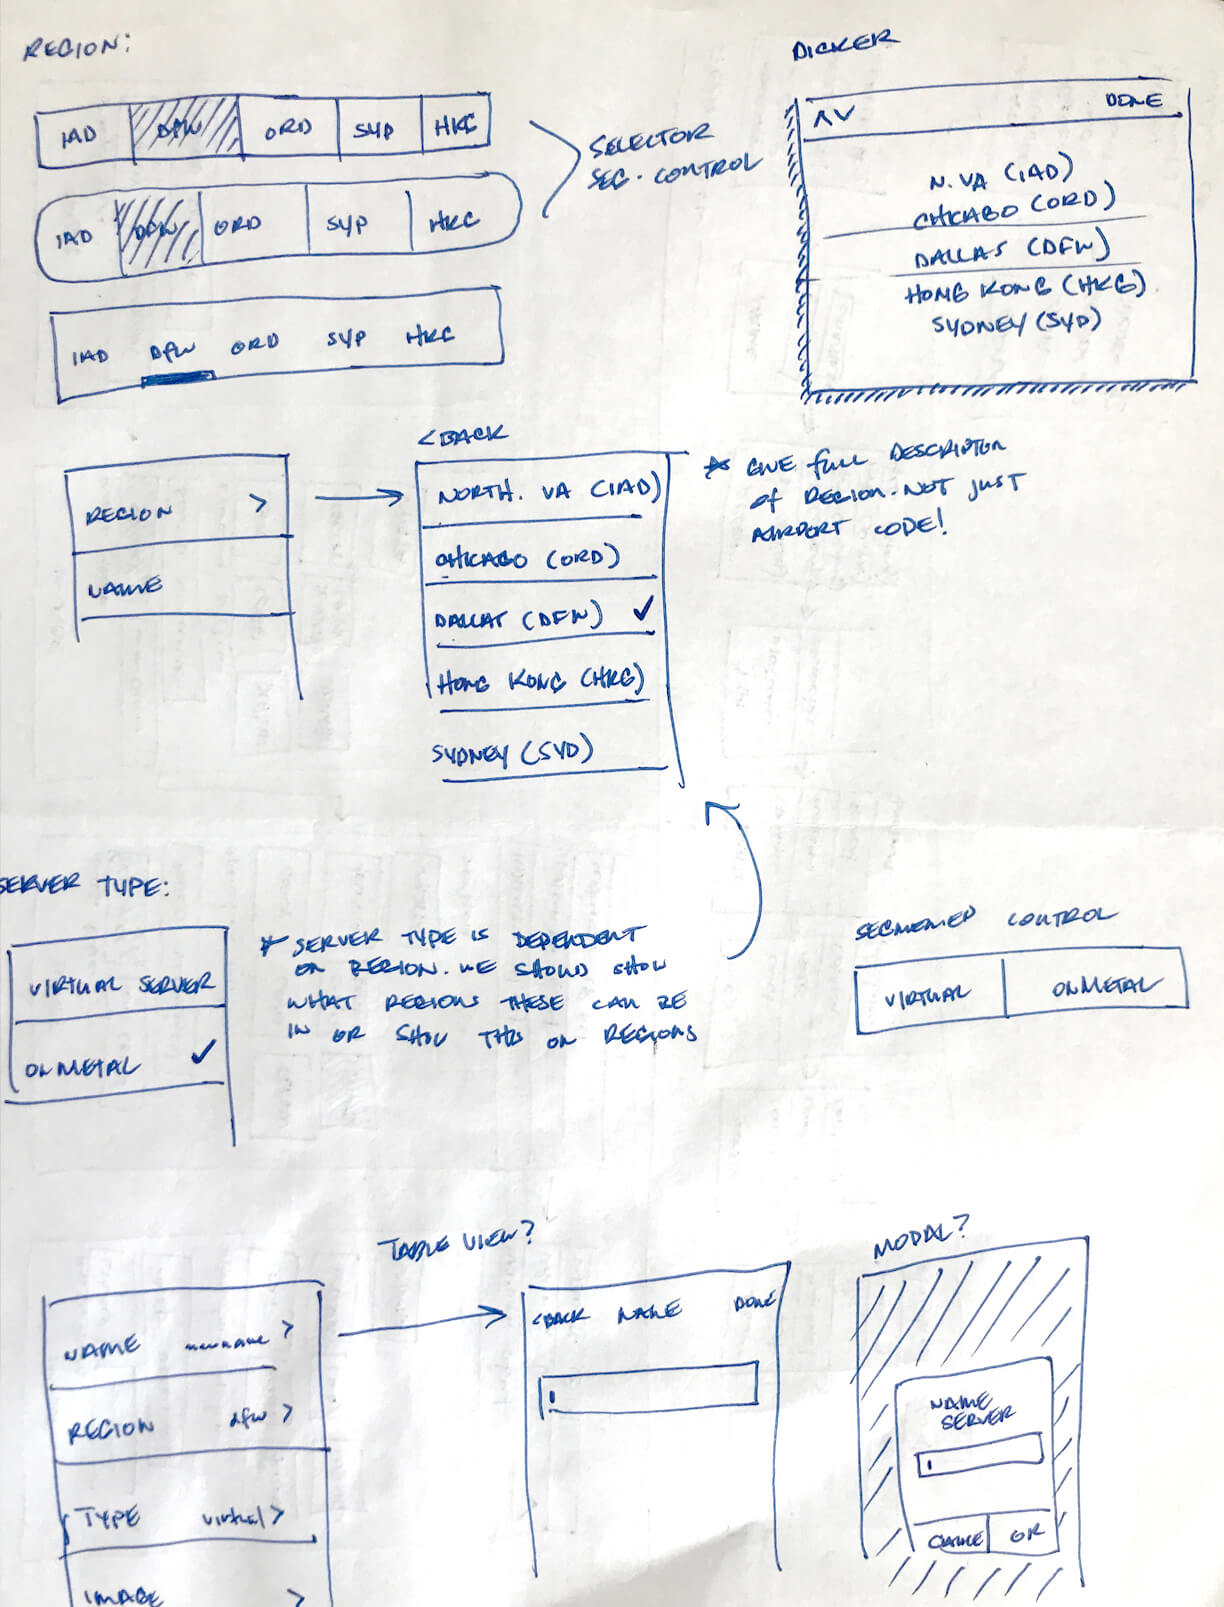 REGION:
IAD DFW ORD SYD HKG
IAD DFW ORD SYD HKG
IAD DFW ORD SYD HKG
SELECTOR
SEG. CONTROL
PICKER
DONE
N. VA (IAD)
CHICAGO (ORD)
DALLAS (DFW)
HONG KONG (HKG)
SYDNEY (SYD)
REGION >
NAME
<BACK
NORTH. VA (IAD)
CHICAGO (ORD)
DALLAS (DFW) ✓
HONG KONG (HKG)
SYDNEY (SYD)
* GIVE full DESCRIPTION
of REGION. NOT just
AIRPORT CODE!
SERVER TYPE:
VIRTUAL SERVER
ONMETAL ✓
* SERVER TYPE IS DEPENDENT
ON REGION. WE SHOULD SHOW
WHAT REGIONS THESE CAN BE
IN OR SHOW THIS ON REGIONS
SEGMENTED CONTROL
VIRTUAL ONMETAL
TABLE VIEW?
NAME newname >
REGION dfw >
TYPE virtual >
IMAGE >
<BACK NAME DONE
MODAL?
NAME
SERVER
OK